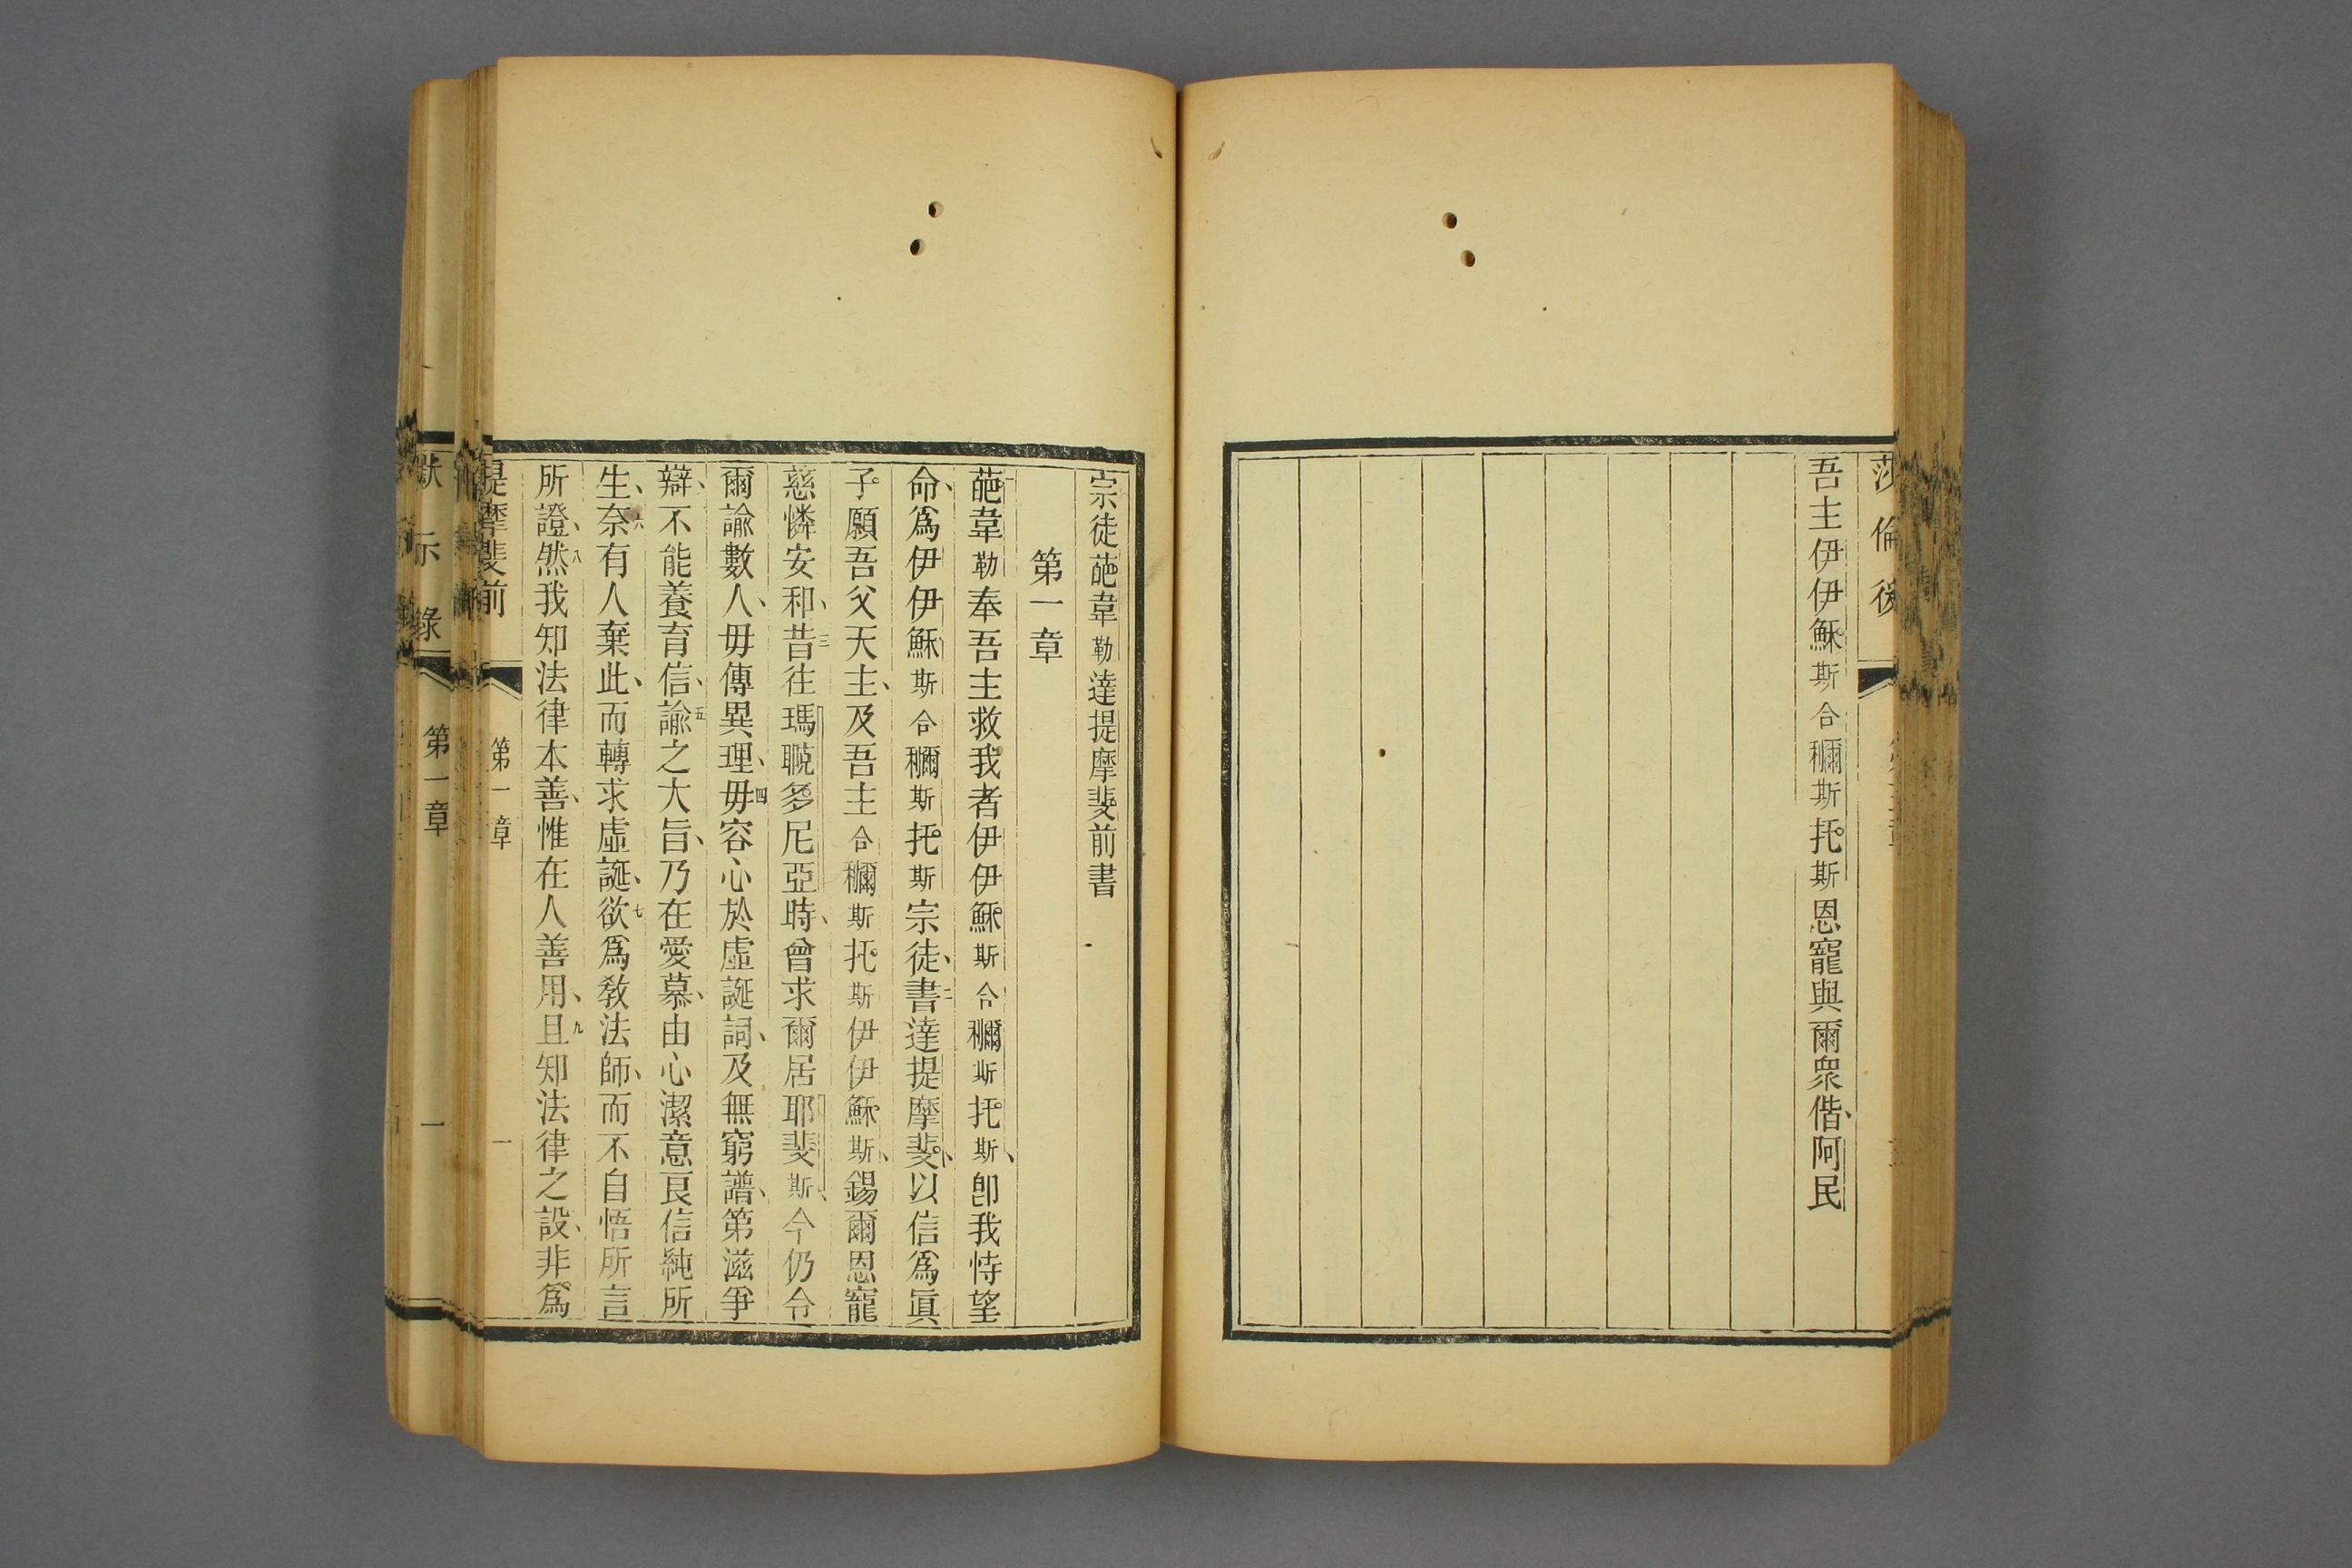 莎倫後
吾主伊伊穌斯合穪斯托斯恩寵與爾衆偕阿民
宗徒葩韋勒達提摩斐前書
第一章
一葩韋勒奉吾主救我者伊伊穌斯合穪斯托斯、卽我恃望
命、爲伊伊穌斯合穪斯托斯宗徒、二書達提摩斐、以信爲眞
子。願吾父天主、及吾主合穪斯托斯伊伊穌斯、錫爾恩寵
慈憐安和、三昔往瑪聭多尼亞時、曾求爾居耶斐斯、今仍令
爾諭數人、毋傳異理、四毋容心於虛誕詞、及無窮譜、第滋爭
辯、不能養育信、五諭之大旨、乃在愛慕、由心潔意良信純所
生、六奈有人棄此、而轉求虛誕、七欲爲敎法師、而不自悟所言
所證、八然我知法律本善、惟在人善用、九且知法律之設、非爲
提摩斐前 第一章 一
默示錄 第一章 一